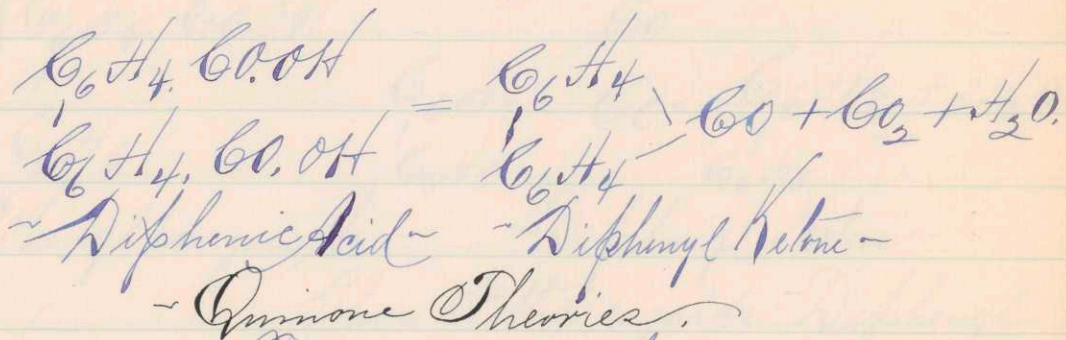 C6H4.CO.OH = C6H4 \ CO + CO2 + H2O.
C6H4.CO.OH C6H4 /
~ Diphenic Acid ~ ~ Diphenyl Ketone ~
~ Quinone Theories.